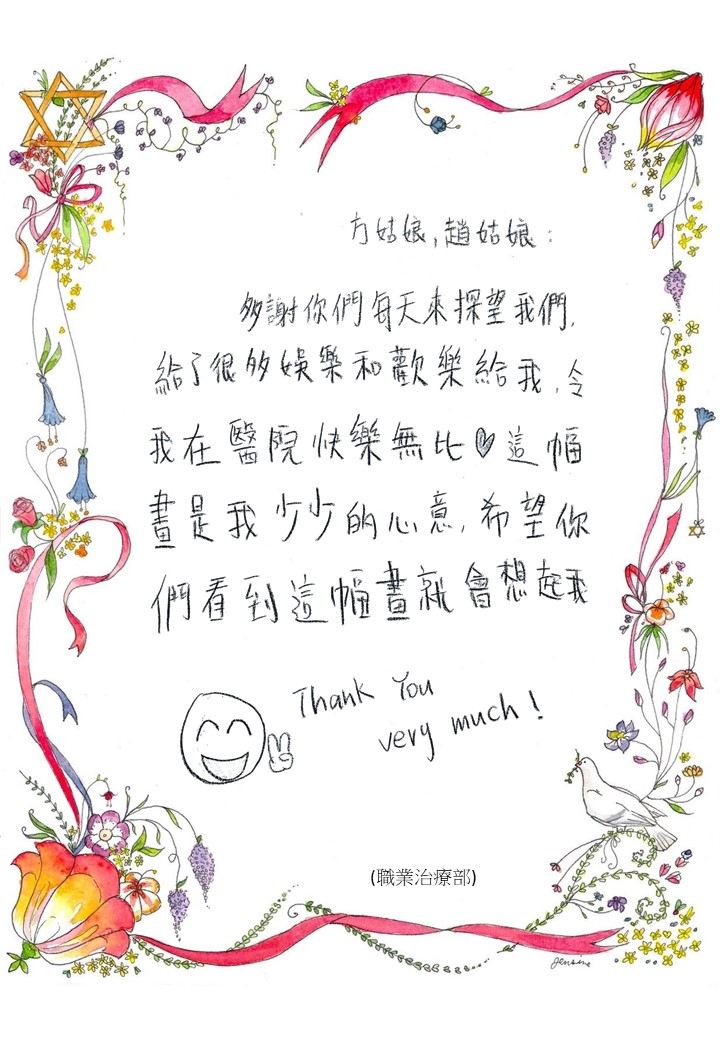 方姑娘,趙姑娘:
多謝你們每天來探望我們,
給了很多娛樂和歡樂給我,令
我在醫院快樂無比♥這幅
畫是我少少的心意,希望你
們看到這幅畫就會想起我
Thank You
very much!
(職業治療部)
Jensine